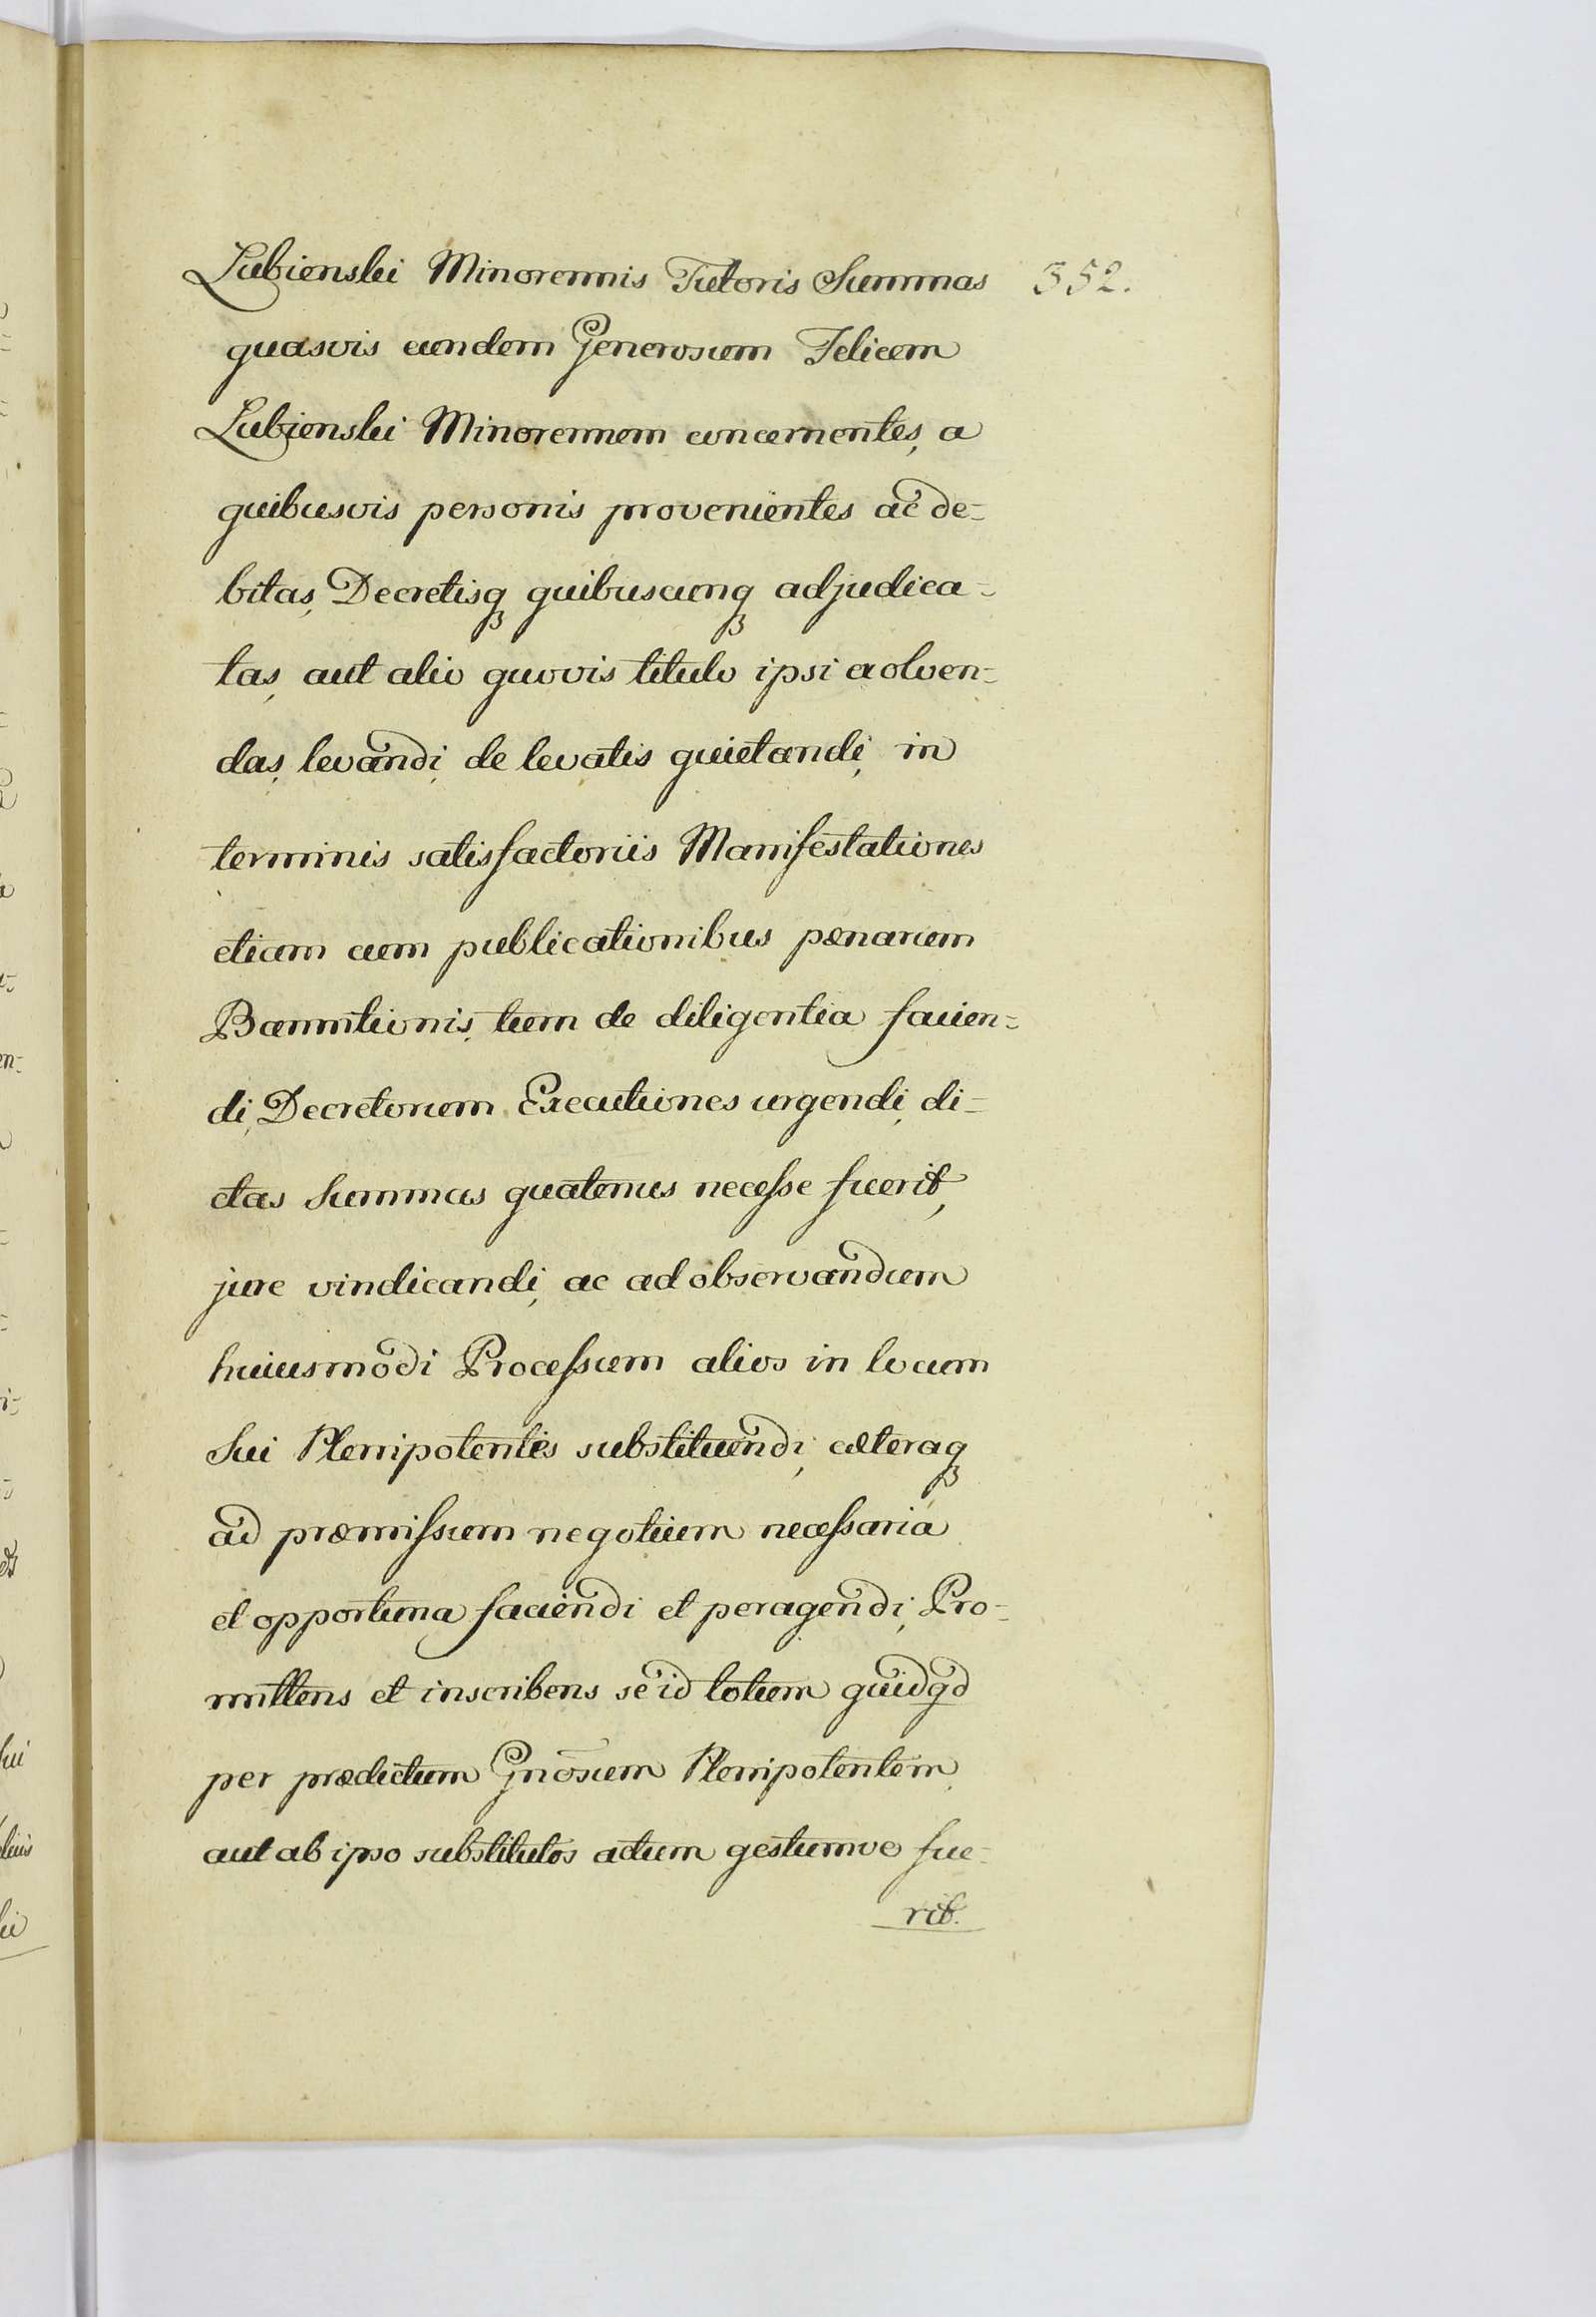 Lubienski Minorennis Tutoris Summas 352.
quasvis eundem Generosum Felicem
Lubienski Minorennem concernentes, a
quibusvis personis provenientes ac de-
bitas, Decretisq quibuscunq adjudica-
tas, aut alio quovis titulo ipsi exolven-
das, levandi, de levatis quietandi, in
terminis satisfactoriis Manifestationes
etiam cum publicationibus pænarum
Bannitionis, tum de diligentia facien-
di, Decretorum Executiones urgendi, di-
ctas Summas quatenus necesse fuerit,
jure vindicandi, ac ad observandum
huiusmodi Processum alios in locum
Sui Plenipotentes substituendi, cæteraq
ad præmissum negotium necessaria
et opportuna faciendi et peragendi, Pro-
mittens et inscribens se id totum quidqd
per prædictum Gnosum Plenipotentem
aut ab ipso substitutos actum gestumve fue-
rit.